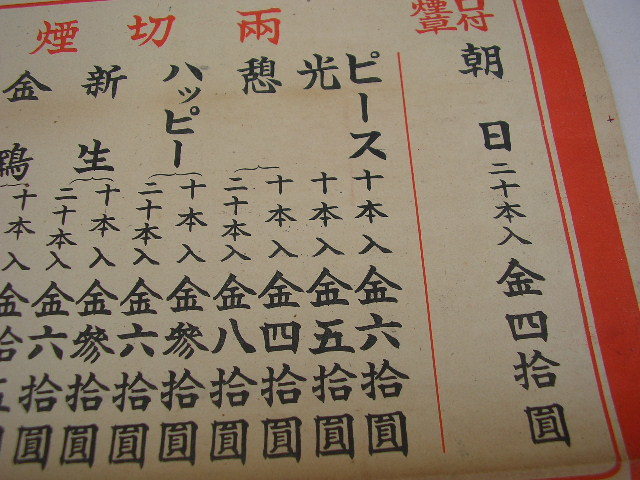 口付
煙草
朝日 二十本入 金四拾圓
兩切煙
ピース 十本入 金六拾圓
光 十本入 金五拾圓
憩 十本入 金四拾圓
二十本入 金八拾圓
ハッピー 十本入 金參拾圓
二十本入 金六拾圓
新生 十本入 金參拾圓
二十本入 金六拾圓
金鵄 十本入 金拾五圓